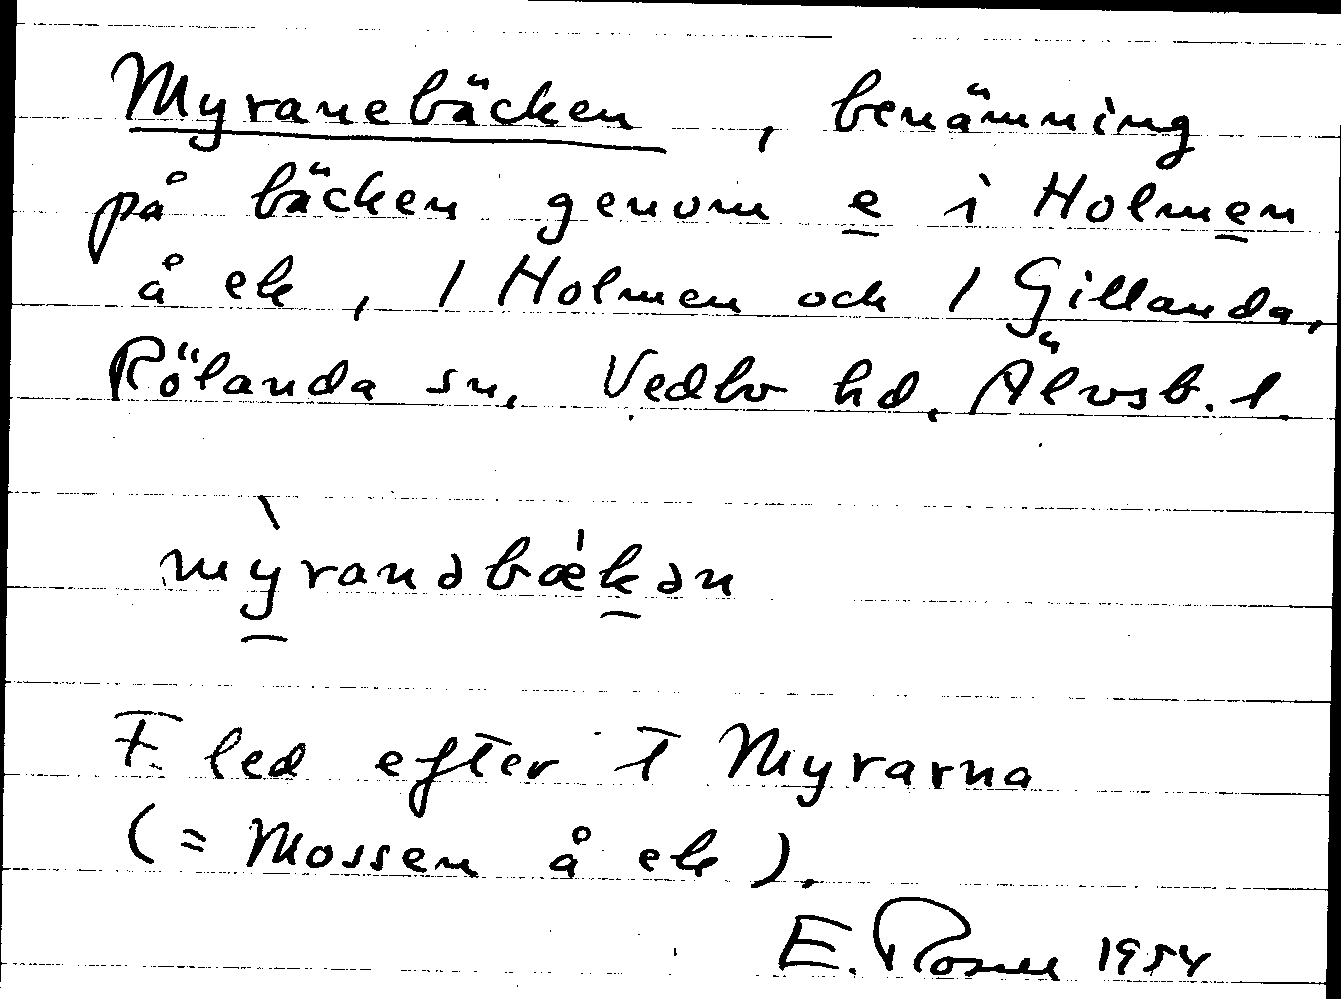 Myranebäcken, benämning
på bäcken genom e i Holmen
å ek, 1 Holmen och 1 Gillanda,
Rölanda sn, Vedbo hd, Älvsb. l.
mỳ̱ranəbæ̍ḵən
F. led efter T Myrarna
(= Mossen å ek).
E. Rosell 1954